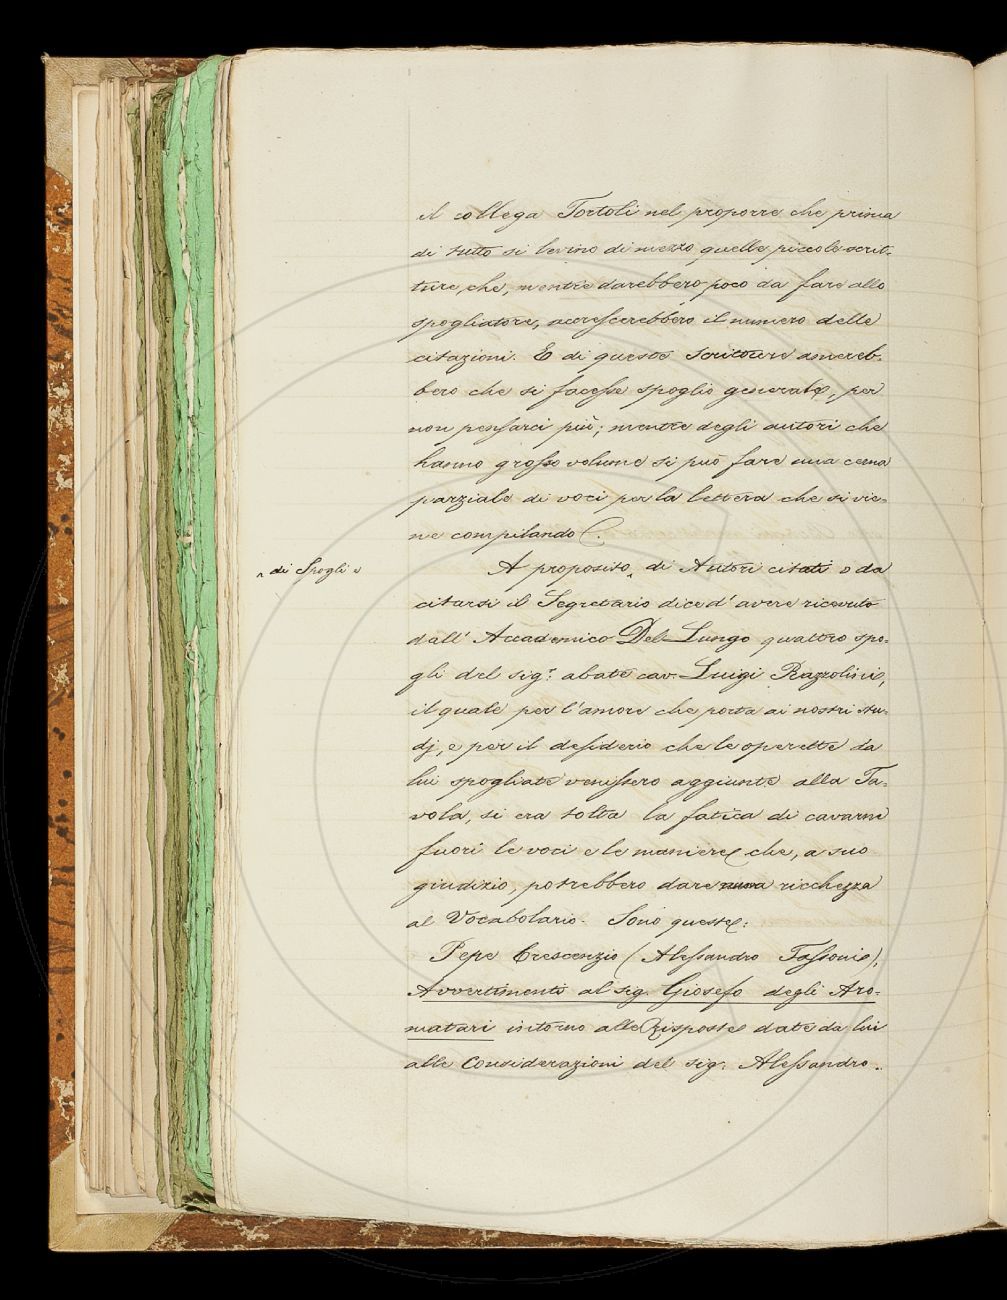 il collega Tortoli nel proporre che prima
di tutto si levino di mezzo quelle piccole scrit-
ture, che, mentre darebbero poco da fare allo
spogliatore, accrescerebbero il numero delle
citazioni. E di queste scritture amereb-
bero che si facesse spoglio generale, per
non pensarci più; mentre degli autori che
hanno grosso volume si può fare una cerna
parziale di voci per la lettera che si vie-
ne compilando.
^ di Spogli
A proposito ^ di Autori citati o da
citarsi il Segretario dice d'avere ricevuto
dall'Accademico Del-Lungo quattro spo-
gli del sig.r abate cav. Luigi Razzolini,
il quale per l'amore che porta ai nostri stu-
dj, e per il desiderio che le operette da
lui spogliate venissero aggiunte alla Ta-
vola, si era tolta la fatica di cavarne
fuori le voci e le maniere che, a suo
giudizio, potrebbero dare nuova ricchezza
al Vocabolario. Sono queste:
Pepe Crescenzio (Alessandro Tassoni),
Avvertimenti al sig. Giosefo degli Aro-
matari intorno alle Risposte date da lui
alle Considerazioni del sig. Alessandro